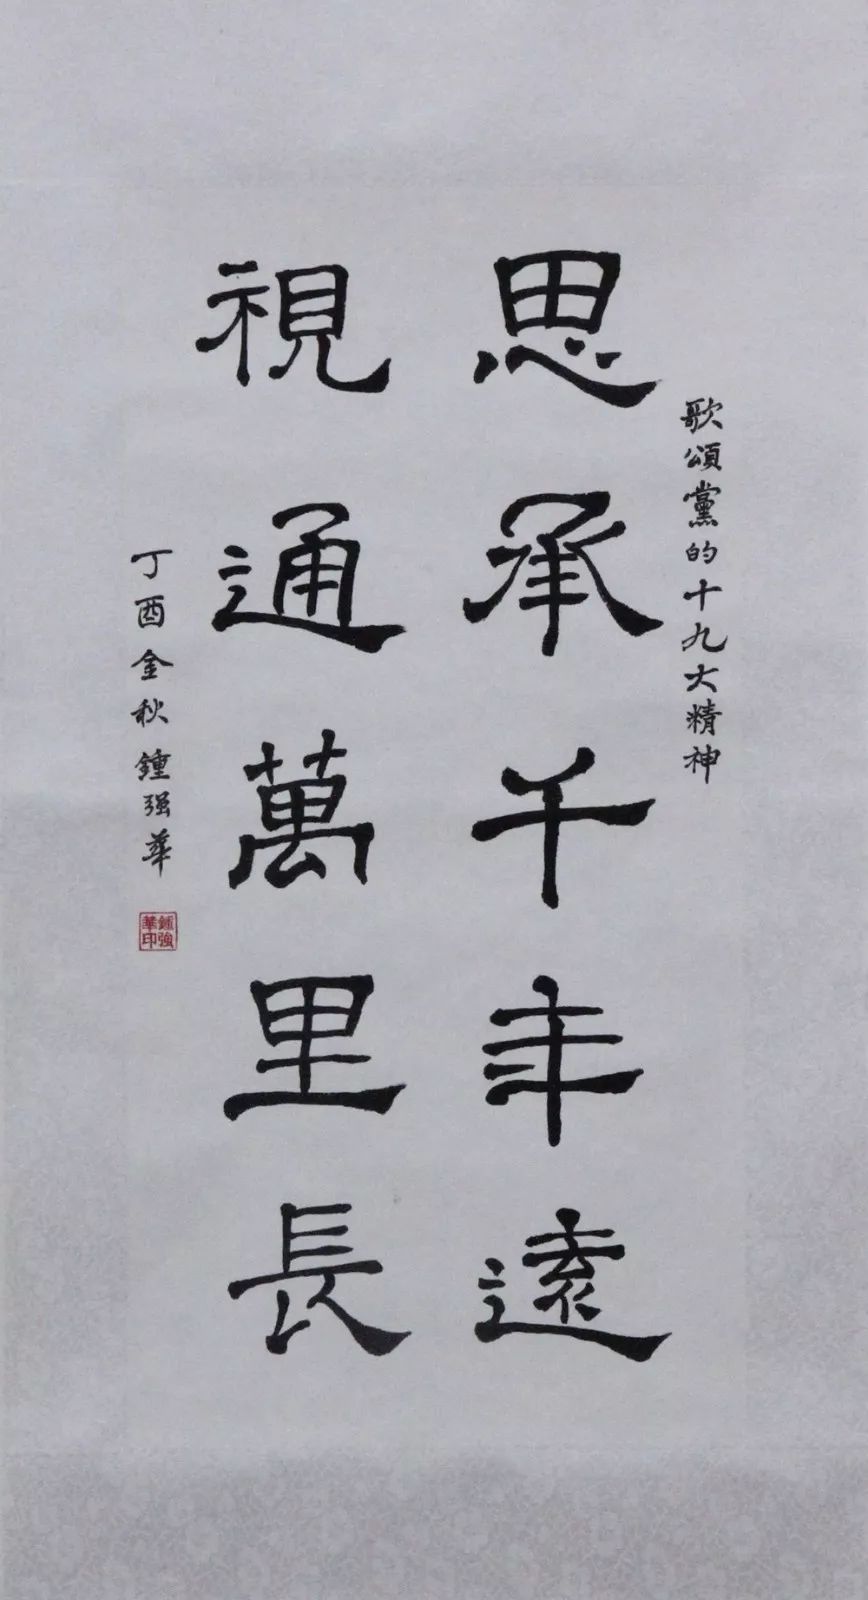 歌頌黨的十九大精神
思承千年遠
視通萬里長
丁酉金秋鍾强華
鍾強華印